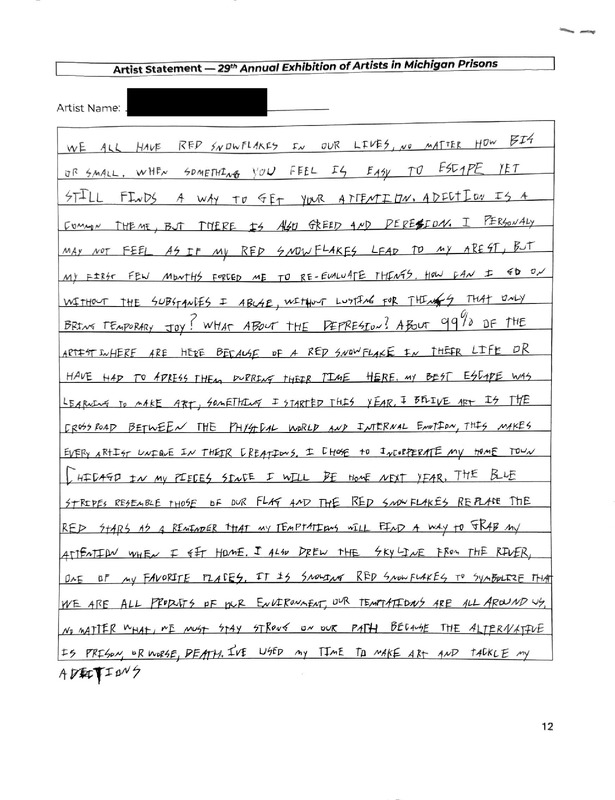 Artist Statement — 29th Annual Exhibition of Artists in Michigan Prisons
Artist Name:
WE ALL HAVE RED SNOWFLAKES IN OUR LIVES, NO MATTER HOW BIG
OR SMALL. WHEN SOMETHING YOU FEEL IS EASY TO ESCAPE YET
STILL FINDS A WAY TO GET YOUR ATTENTION. ADECTION IS A
COMMON THEME, BUT THERE IS ALSO GREED AND DEPRESION. I PERSONALY
MAY NOT FEEL AS IF MY RED SNOWFLAKES LEAD TO MY AREST, BUT
MY FIRST FEW MONTHS FORCED ME TO RE-EVALUATE THINGS. HOW CAN I GO ON
WITHOUT THE SUBSTANCES I ABUSE, WITHOUT LUSTING FOR THINGS THAT ONLY
BRING TEMPORARY JOY? WHAT ABOUT THE DEPRESION? ABOUT 99% OF THE
ARTIST IN HERE ARE HERE BECAUSE OF A RED SNOWFLAKE IN THEIR LIFE OR
HAVE HAD TO ADRESS THEM DURRING THEIR TIME HERE. MY BEST ESCAPE WAS
LEARNING TO MAKE ART, SOMETHING I STARTED THIS YEAR. I BELIVE ART IS THE
CROSSROAD BETWEEN THE PHISICAL WORLD AND INTERNAL EMOTION, THIS MAKES
EVERY ARTIST UNIQUE IN THEIR CREATIONS. I CHOSE TO INCORPERATE MY HOME TOWN
CHICAGO IN MY PIECES SINCE I WILL BE HOME NEXT YEAR. THE BLUE
STRIPES RESEMBLE THOSE OF OUR FLAG AND THE RED SNOWFLAKES REPLACE THE
RED STARS AS A REMINDER THAT MY TEMPTATIONS WILL FIND A WAY TO GRAB MY
ATTENTION WHEN I GET HOME. I ALSO DREW THE SKYLINE FROM THE RIVER,
ONE OF MY FAVORITE PLACES. IT IS SNOWING RED SNOWFLAKES TO SYMBOLIZE THAT
WE ARE ALL PRODUCTS OF OUR ENVIRONMENT, OUR TEMPTATIONS ARE ALL AROUND US.
NO MATTER WHAT, WE MUST STAY STRONG ON OUR PATH BECAUSE THE ALTERNATIVE
IS PRISON, OR WORSE, DEATH. I'VE USED MY TIME TO MAKE ART AND TACKLE MY
ADICTIONS
12